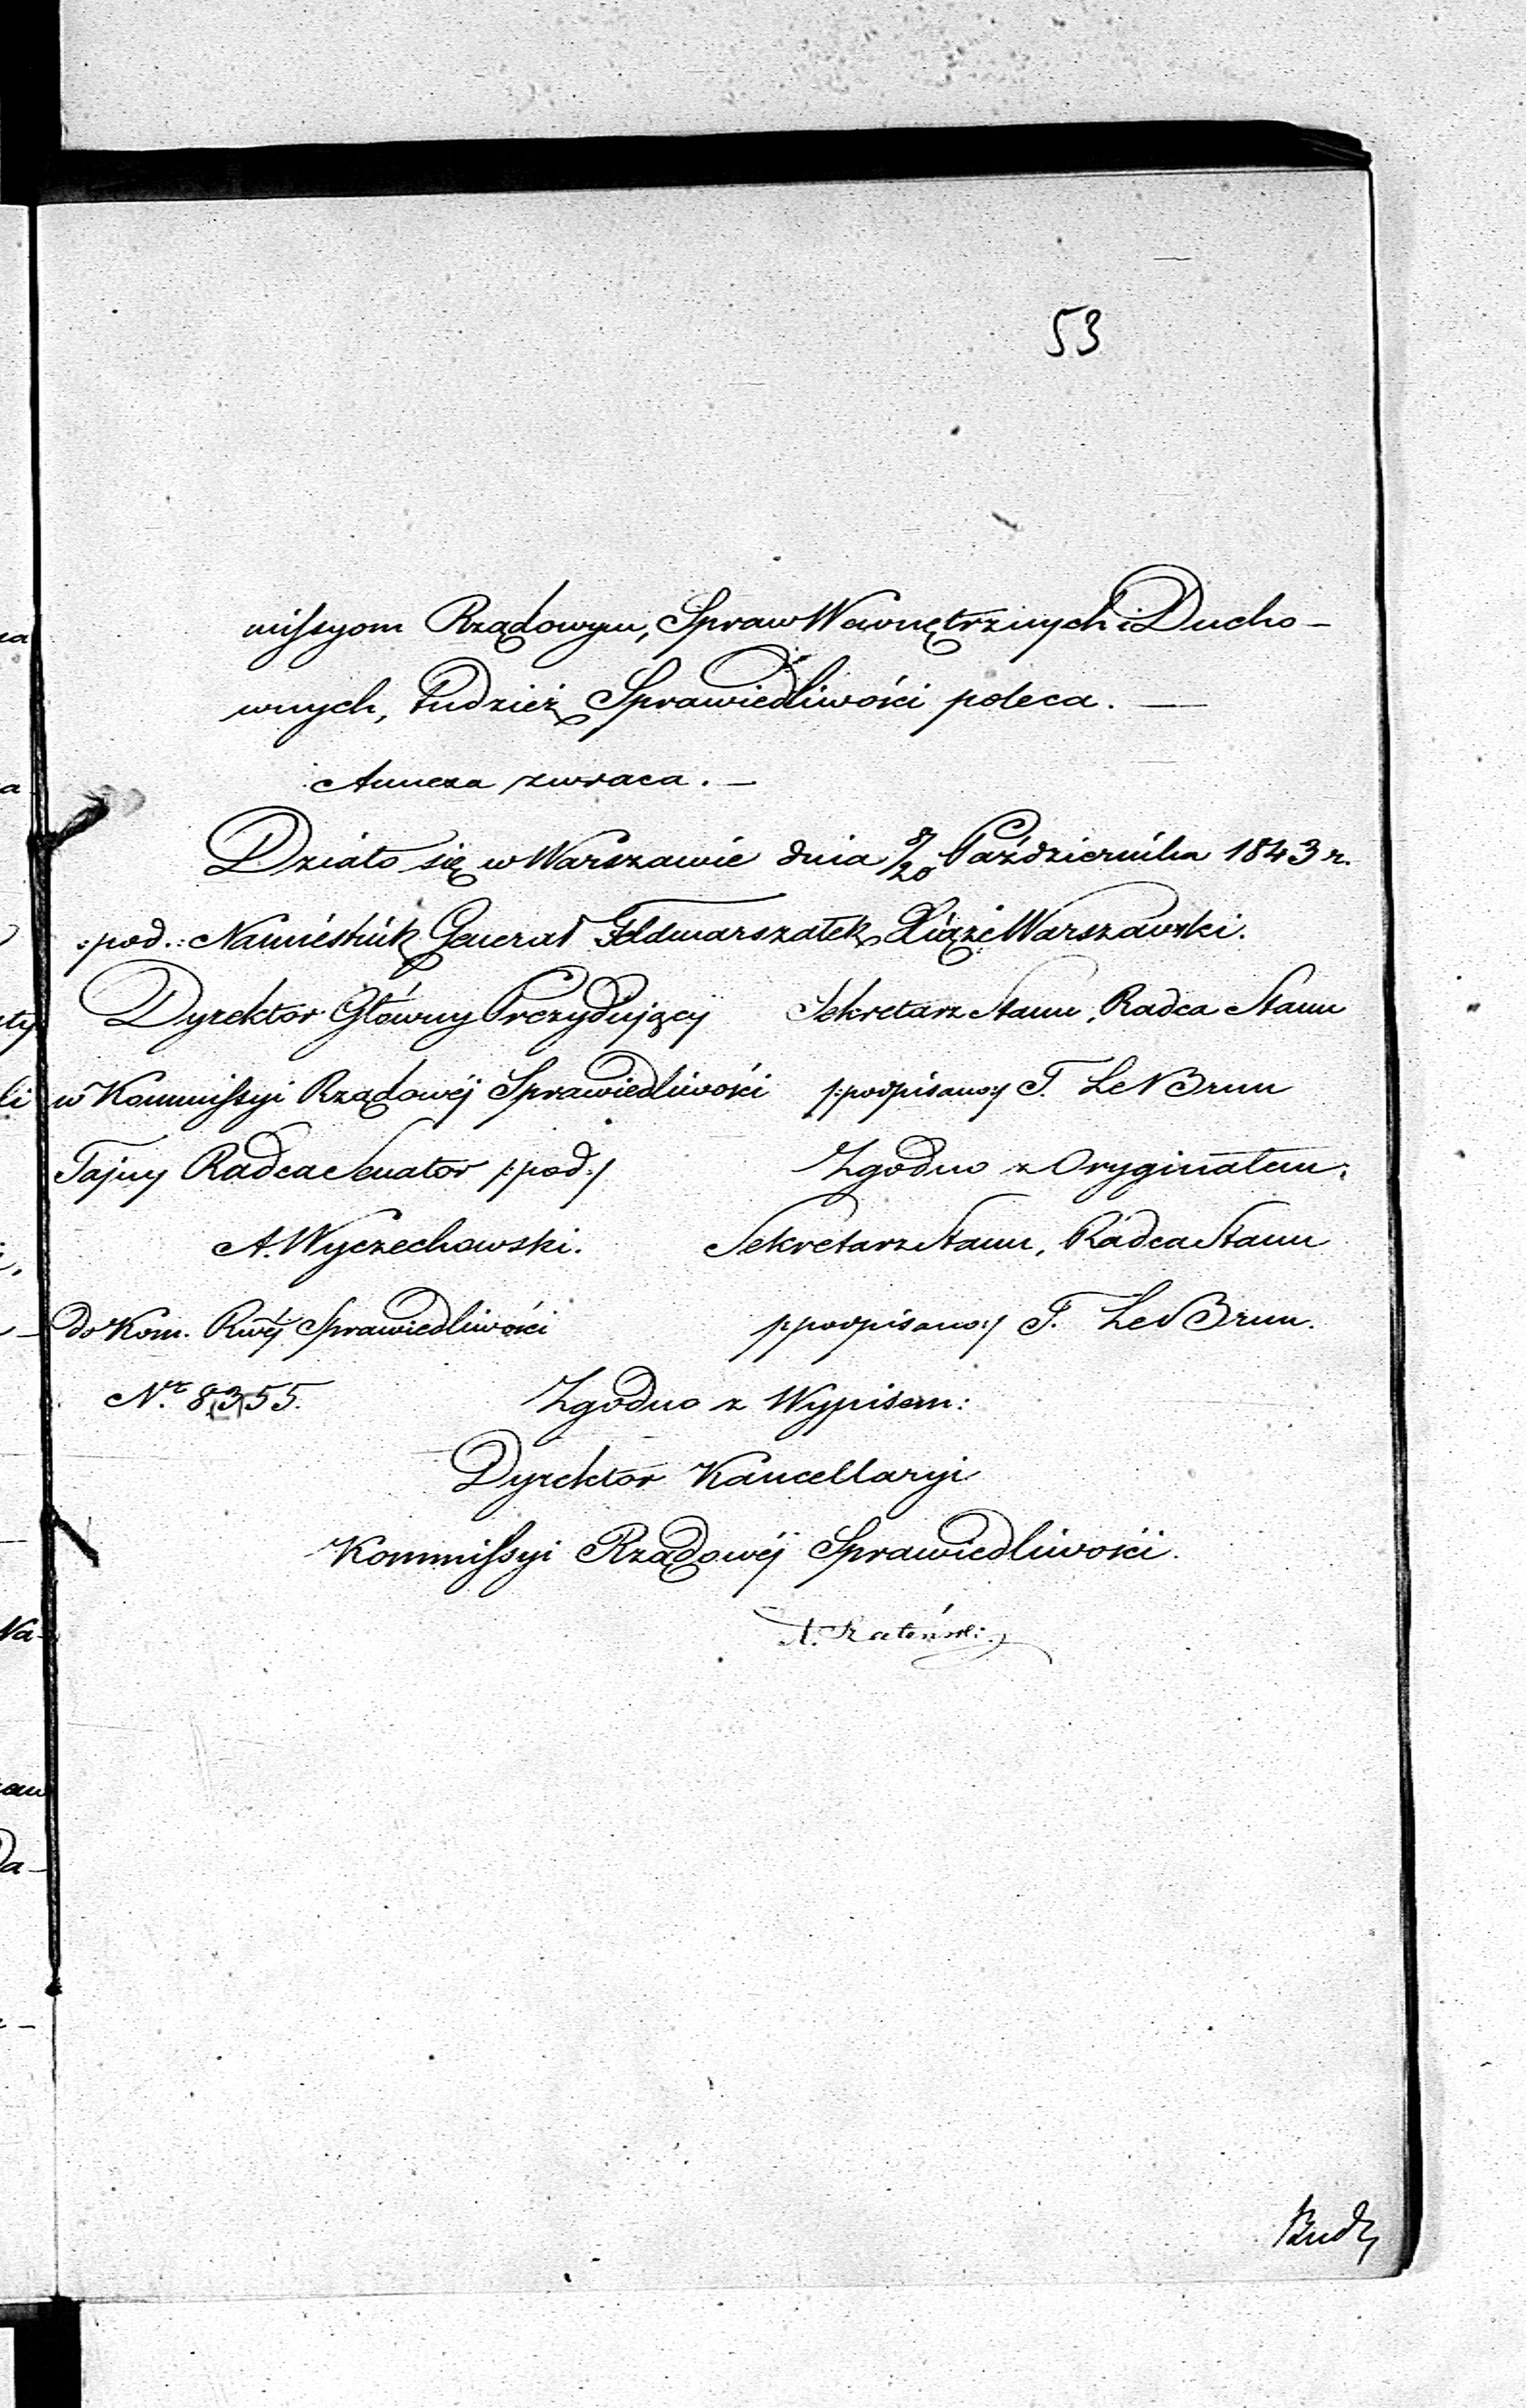 53
missyom Rządowym, Spraw Wewnętrznych i Ducho-
wnych, tudzież Sprawiedliwości poleca. —
Annexa zwraca. —
Działo się w Warszawie dnia 8/20 Października 1843 r.
:pod.: Namiestnik Generał Feldmarszałek, Xiąże Warszawski.
Dyrektor Główny Prezydujący
w Kommissyi Rządowéj Sprawiedliwości
Tajny Radca Senator /:pod:/
A. Wyczechowski.
do Kom. Rwéj Sprawiedliwości
Nr. 8355.
Sekretarz Stanu, Radca Stanu
/:podpisano:/ T. Le Brun
Zgodno z Oryginałem:
Sekretarz Stanu, Radca Stanu
/:podpisano:/ T. Le Brun.
Zgodno z Wypisem:
Dyrektor Kancellaryi
Kommissyi Rządowéj Sprawiedliwości.
A.